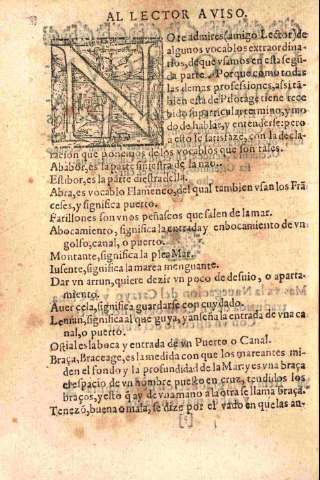 AL LECTOR AVISO.
NO te admires (amigo Lector) de
algunos vocablos extraordina-
rios, de que vsamos en esta segū
da parte. Porque como todas
las demas professiones, assi tā
bien esta de Pilotage tiene rece
bido su particular termino, y mo
do de hablar, y entenderse: pero
a esto se satisfaze, con la decla-
racion que ponemos de los vocablos que son tales.
Ababor, es la parte siniestra de la nau.
Estibor, es la parte diestra della.
Abra, es vocablo Flamenco, del qual tambien vsan los Frā
ceses, y significa puerto.
Farillones son vnos peñascos que salen de la mar.
Abocamiento, significa la entrada y enbocamiento de vn
golfo, canal, o puerto.
Montante, significa la plea Mar.
Iusente, significa la marea menguante.
Dar vn arrun, quiere dezir vn poco de desuio, o aparta-
miento.
Auer cela, significa guardarse con cuydado.
Leman, significa al que guya, y enseña la entrada de vna ca
nal, o puerto.
Ostial es la boca y entrada de vn Puerto o Canal.
Braça, Braceage, es la medida con que los mareantes mi-
den el fondo y la profundidad de la Mar: y es vna braça
el espacio de vn hombre puesto en cruz, tendidos los
braços, y esto q̃ ay de vna mano a la otra se llama braça.
Tenezō, buena o mala, se dize por el vado en que las an-